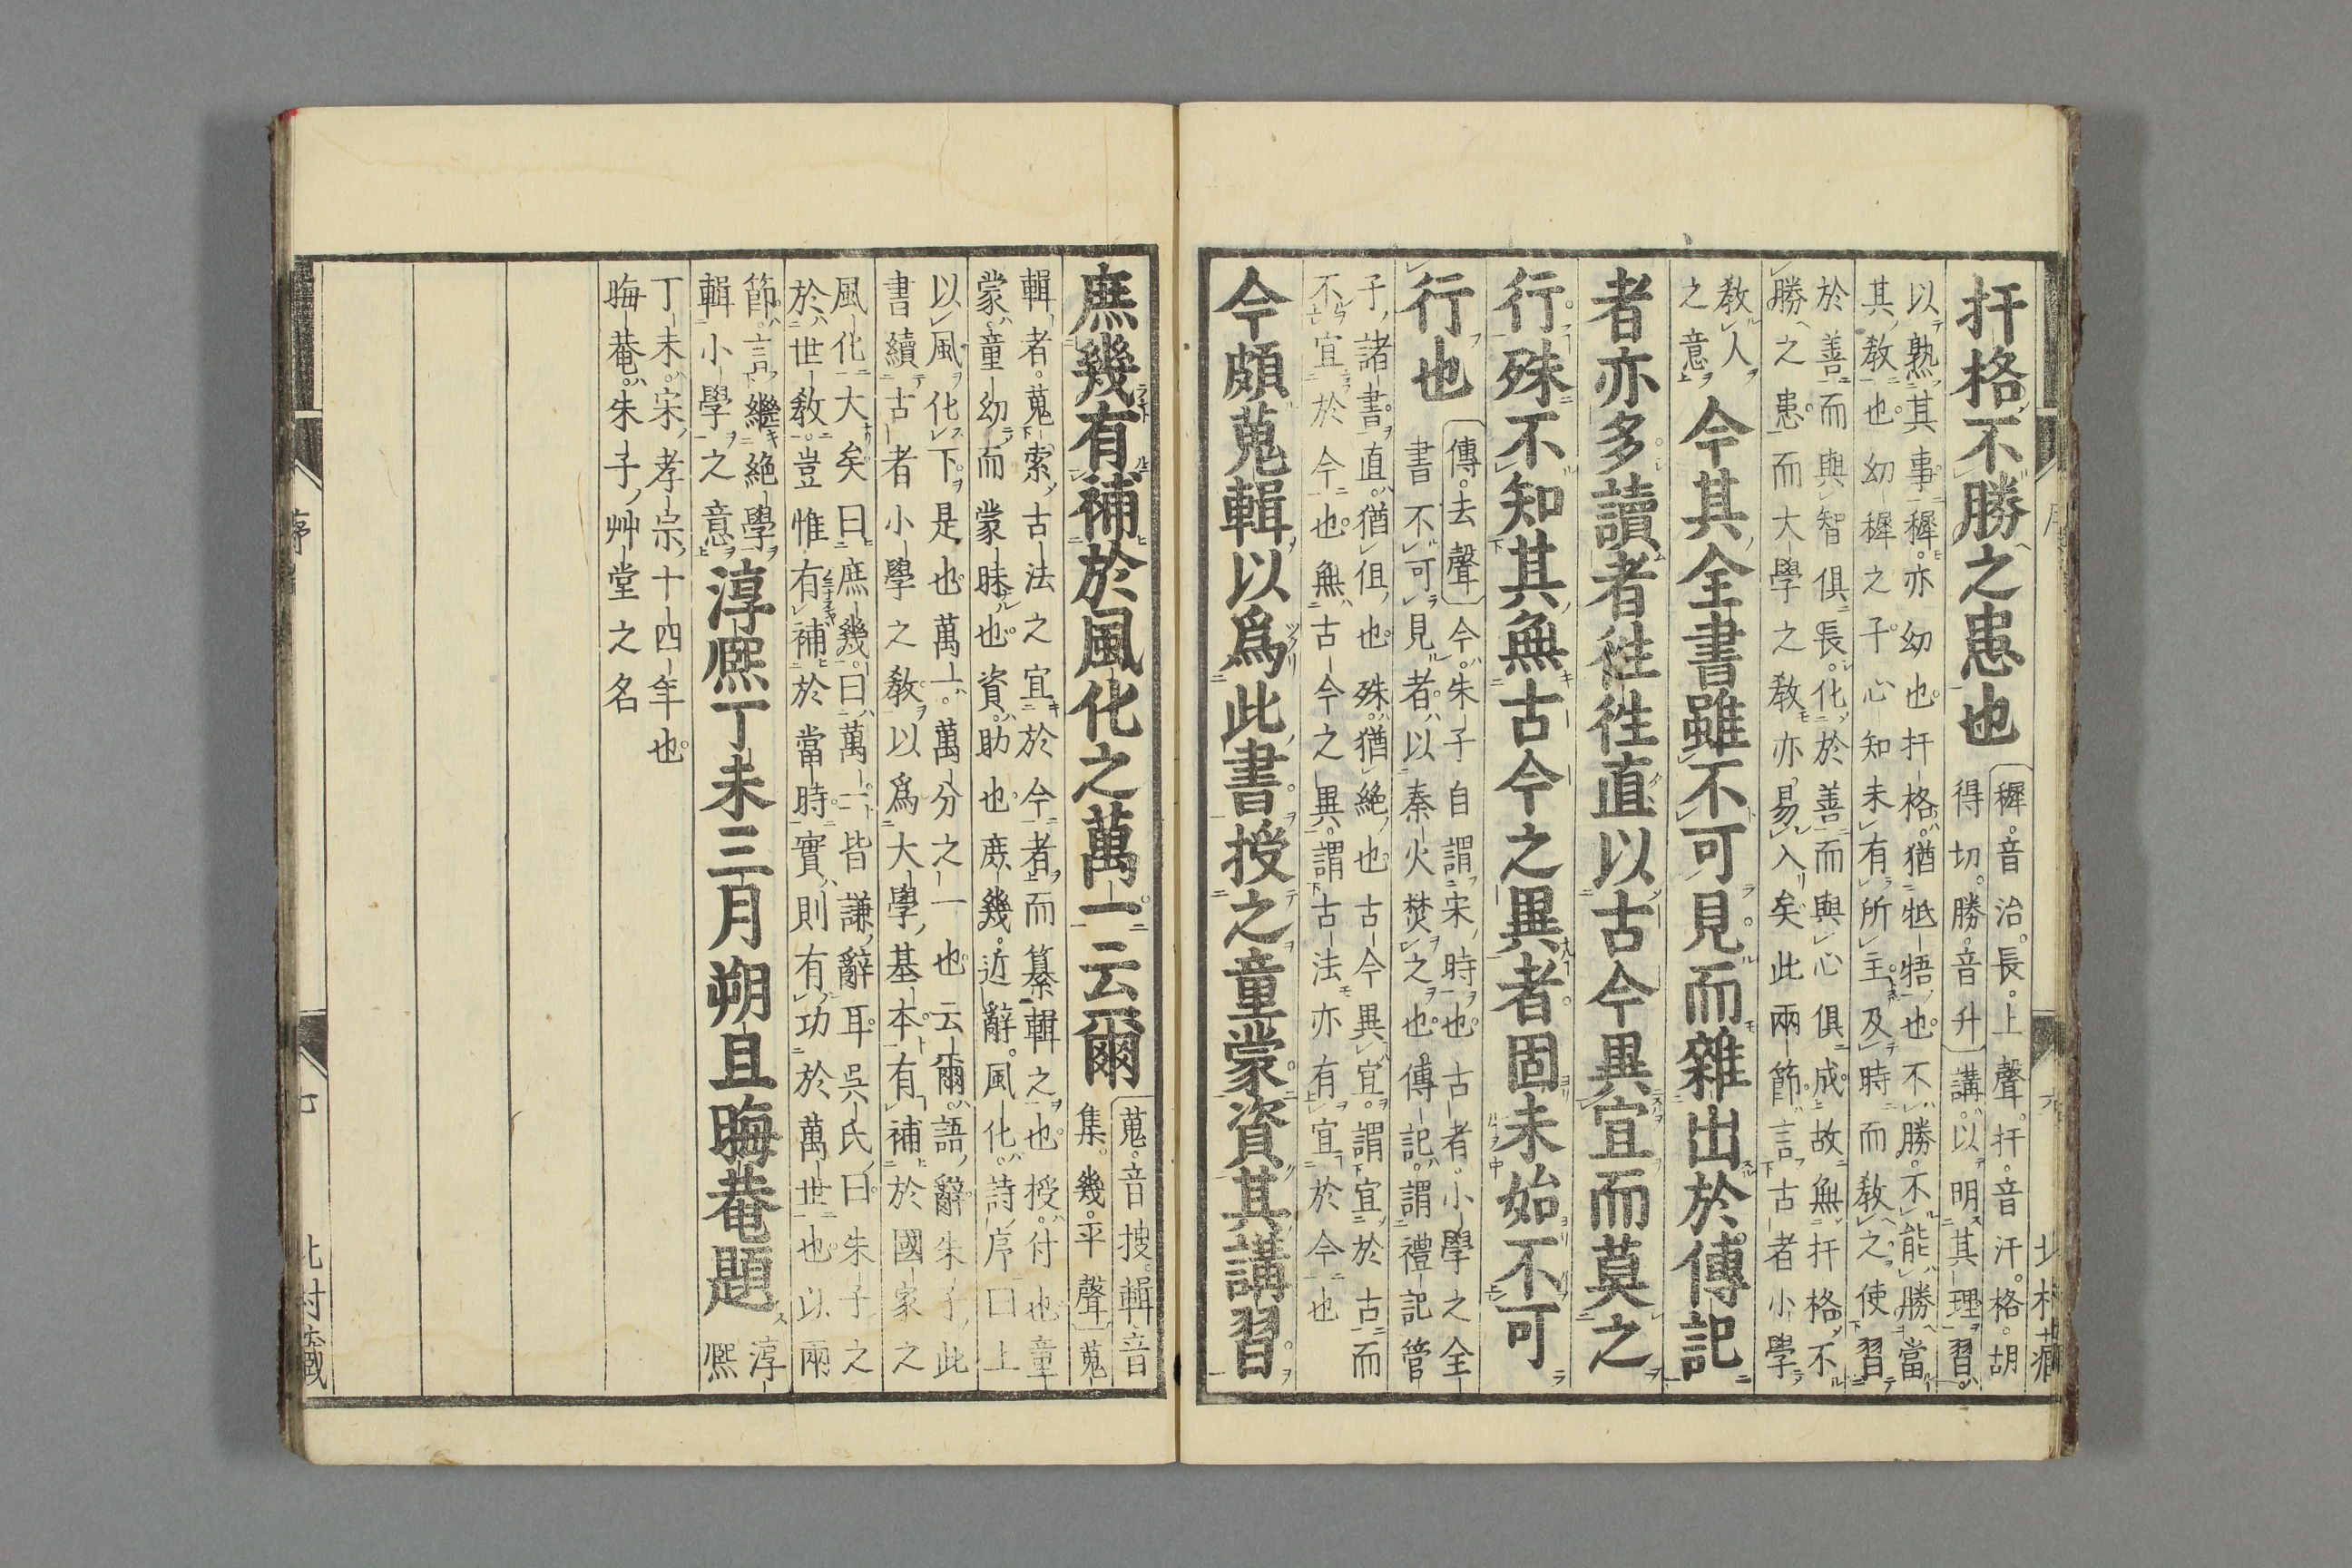 扞格不勝之患也
〔穉。音治。長。上聲。扞。音汗。格。胡
得切。勝。音升〕講。以明其理習。
以熟其事穉。亦幼也扞格。猶牴牾也不勝。不能勝當
其教也幼穉之子心知未有所主及時而教之使習
於善而與智俱長。化於善而與心俱成故無扞格不
勝之患而大學之教亦易入矣此兩節言古者小學
教人
之意
今其全書雖不可見而雜出於傳記
者亦多讀者徃徃直以古今異宜而莫之
行殊不知其無古今之異者固未始不可
行也
〔傳。去聲〕今。朱子自謂宋時也古者。小學之全
書不可見者。以秦火焚之也傳記。謂禮記管
子諸書直。猶但也殊。猶絶也古今異宜。謂宜於古而
不宜於今也無古今之異。謂古法亦有宜於今也
今頗蒐輯以爲此書授之童蒙資其講習
庶幾有補於風化之萬一云爾
〔蒐。音搜。輯。音
集。幾。平聲〕蒐
輯者。蒐索古法之宜於今者而纂輯之也授。付也童
蒙。童幼而蒙昧也資。助也庶幾。近辭。風化。詩序曰上
以風化下是也萬一。萬分之一也云爾。語辭朱子此
書續古者小學之教以爲大學基本有補於國家之
風化大矣曰庶幾。曰萬一。皆謙辭耳吳氏曰朱子之
於世教。豈惟有補於當時實則有功於萬世也以兩
節。言繼絶學
輯小學之意
淳熈丁未三月朔旦晦菴題
淳
熈
丁未。宋孝宗十四年也
晦菴。朱子艸堂之名
序
七
北村藏